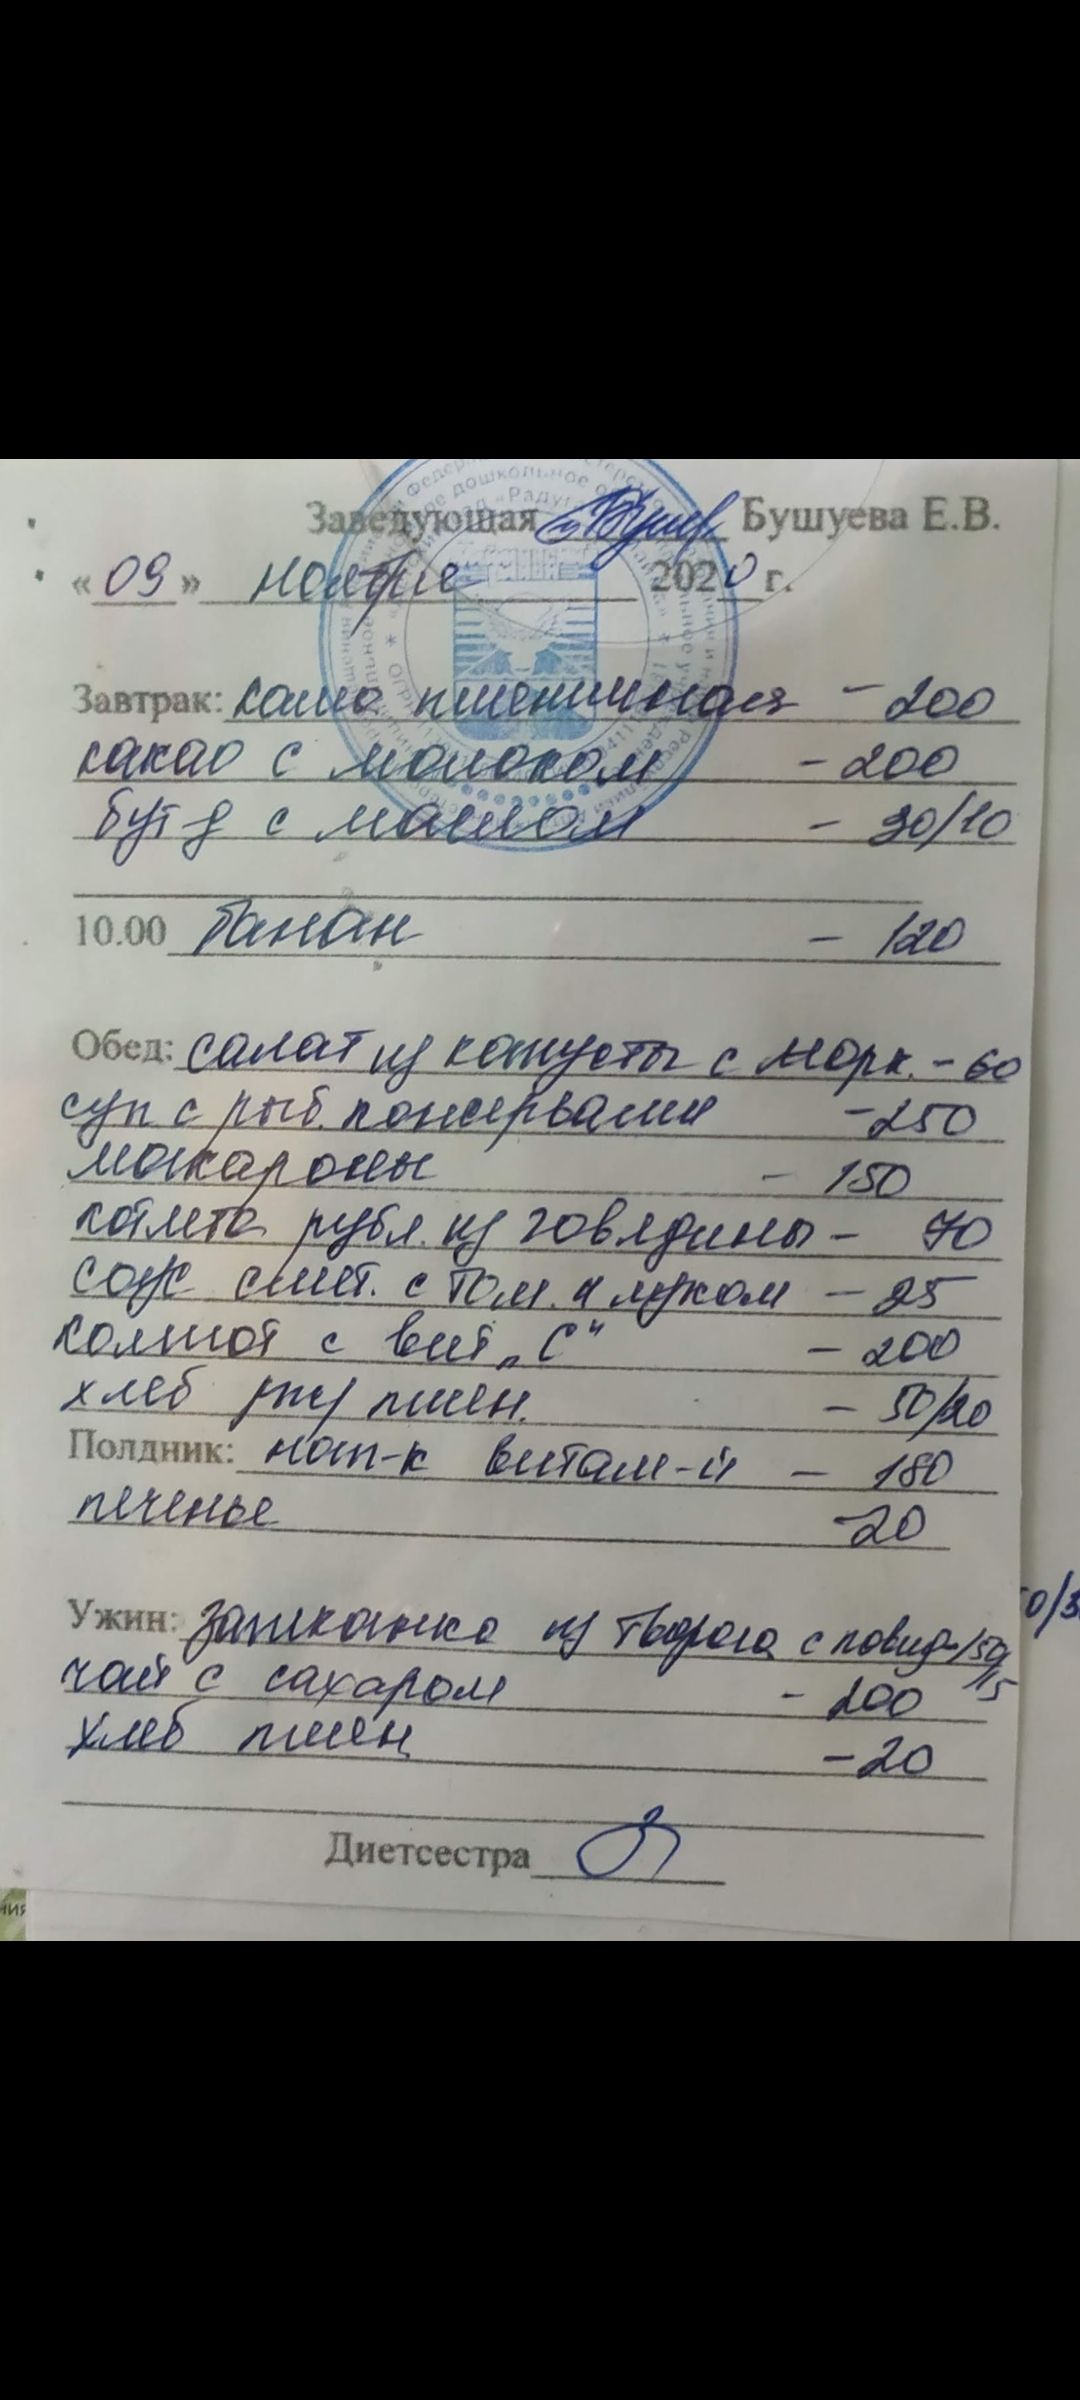 Заведующая Бушуева Е.В.
«09» ноября 2020 г.
Завтрак: каша пшеничная - 200
какао с молоком - 200
бут-д с маслом - 30/10
10.00 банан - 120
Обед: салат из капусты с морк. - 60
суп с рыб. консервами - 250
макароны - 150
котлета рубл. из говядины - 70
соус смет. с том. и луком - 25
компот с вит „С“ - 200
хлеб рж/пшен. - 50/20
Полдник: нап-к витам-й - 180
печенье - 20
Ужин: запеканка из творога с повид - 150/15
чай с сахаром - 200
хлеб пшен - 20
Диетсестра